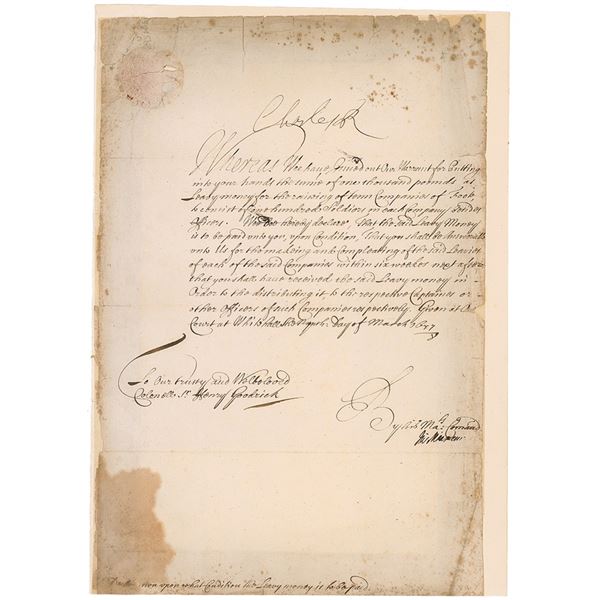 Charles R
Whereas Wee have signed out Our Warrant for Putting
into your hands the sume of one thousand pounds as
Leavy money for the raising of tenn Companies of Foote
to consist of one hundred Soldiers in each Company besides
Officers. Wee doe hereby declare, That the said Leavy Money
is to be paid unto you, upon Condition, That you shall be Answerable
unto Us for the making and Compleating of the said Leavies
of each of the said Companies within six weekes next after
that you shall have received the said Leavy money in
Order to the distributing it, to the respective Captaines or
other Officers of such Companies respectively. Given at Our
Court at Whitehall the Day of March 1677/8
To Our trusty and Welbeloved
Colonell Sr. Henry Goodrick
By his Mats: Comand
upon what Condition the Leavy money is to be paid.